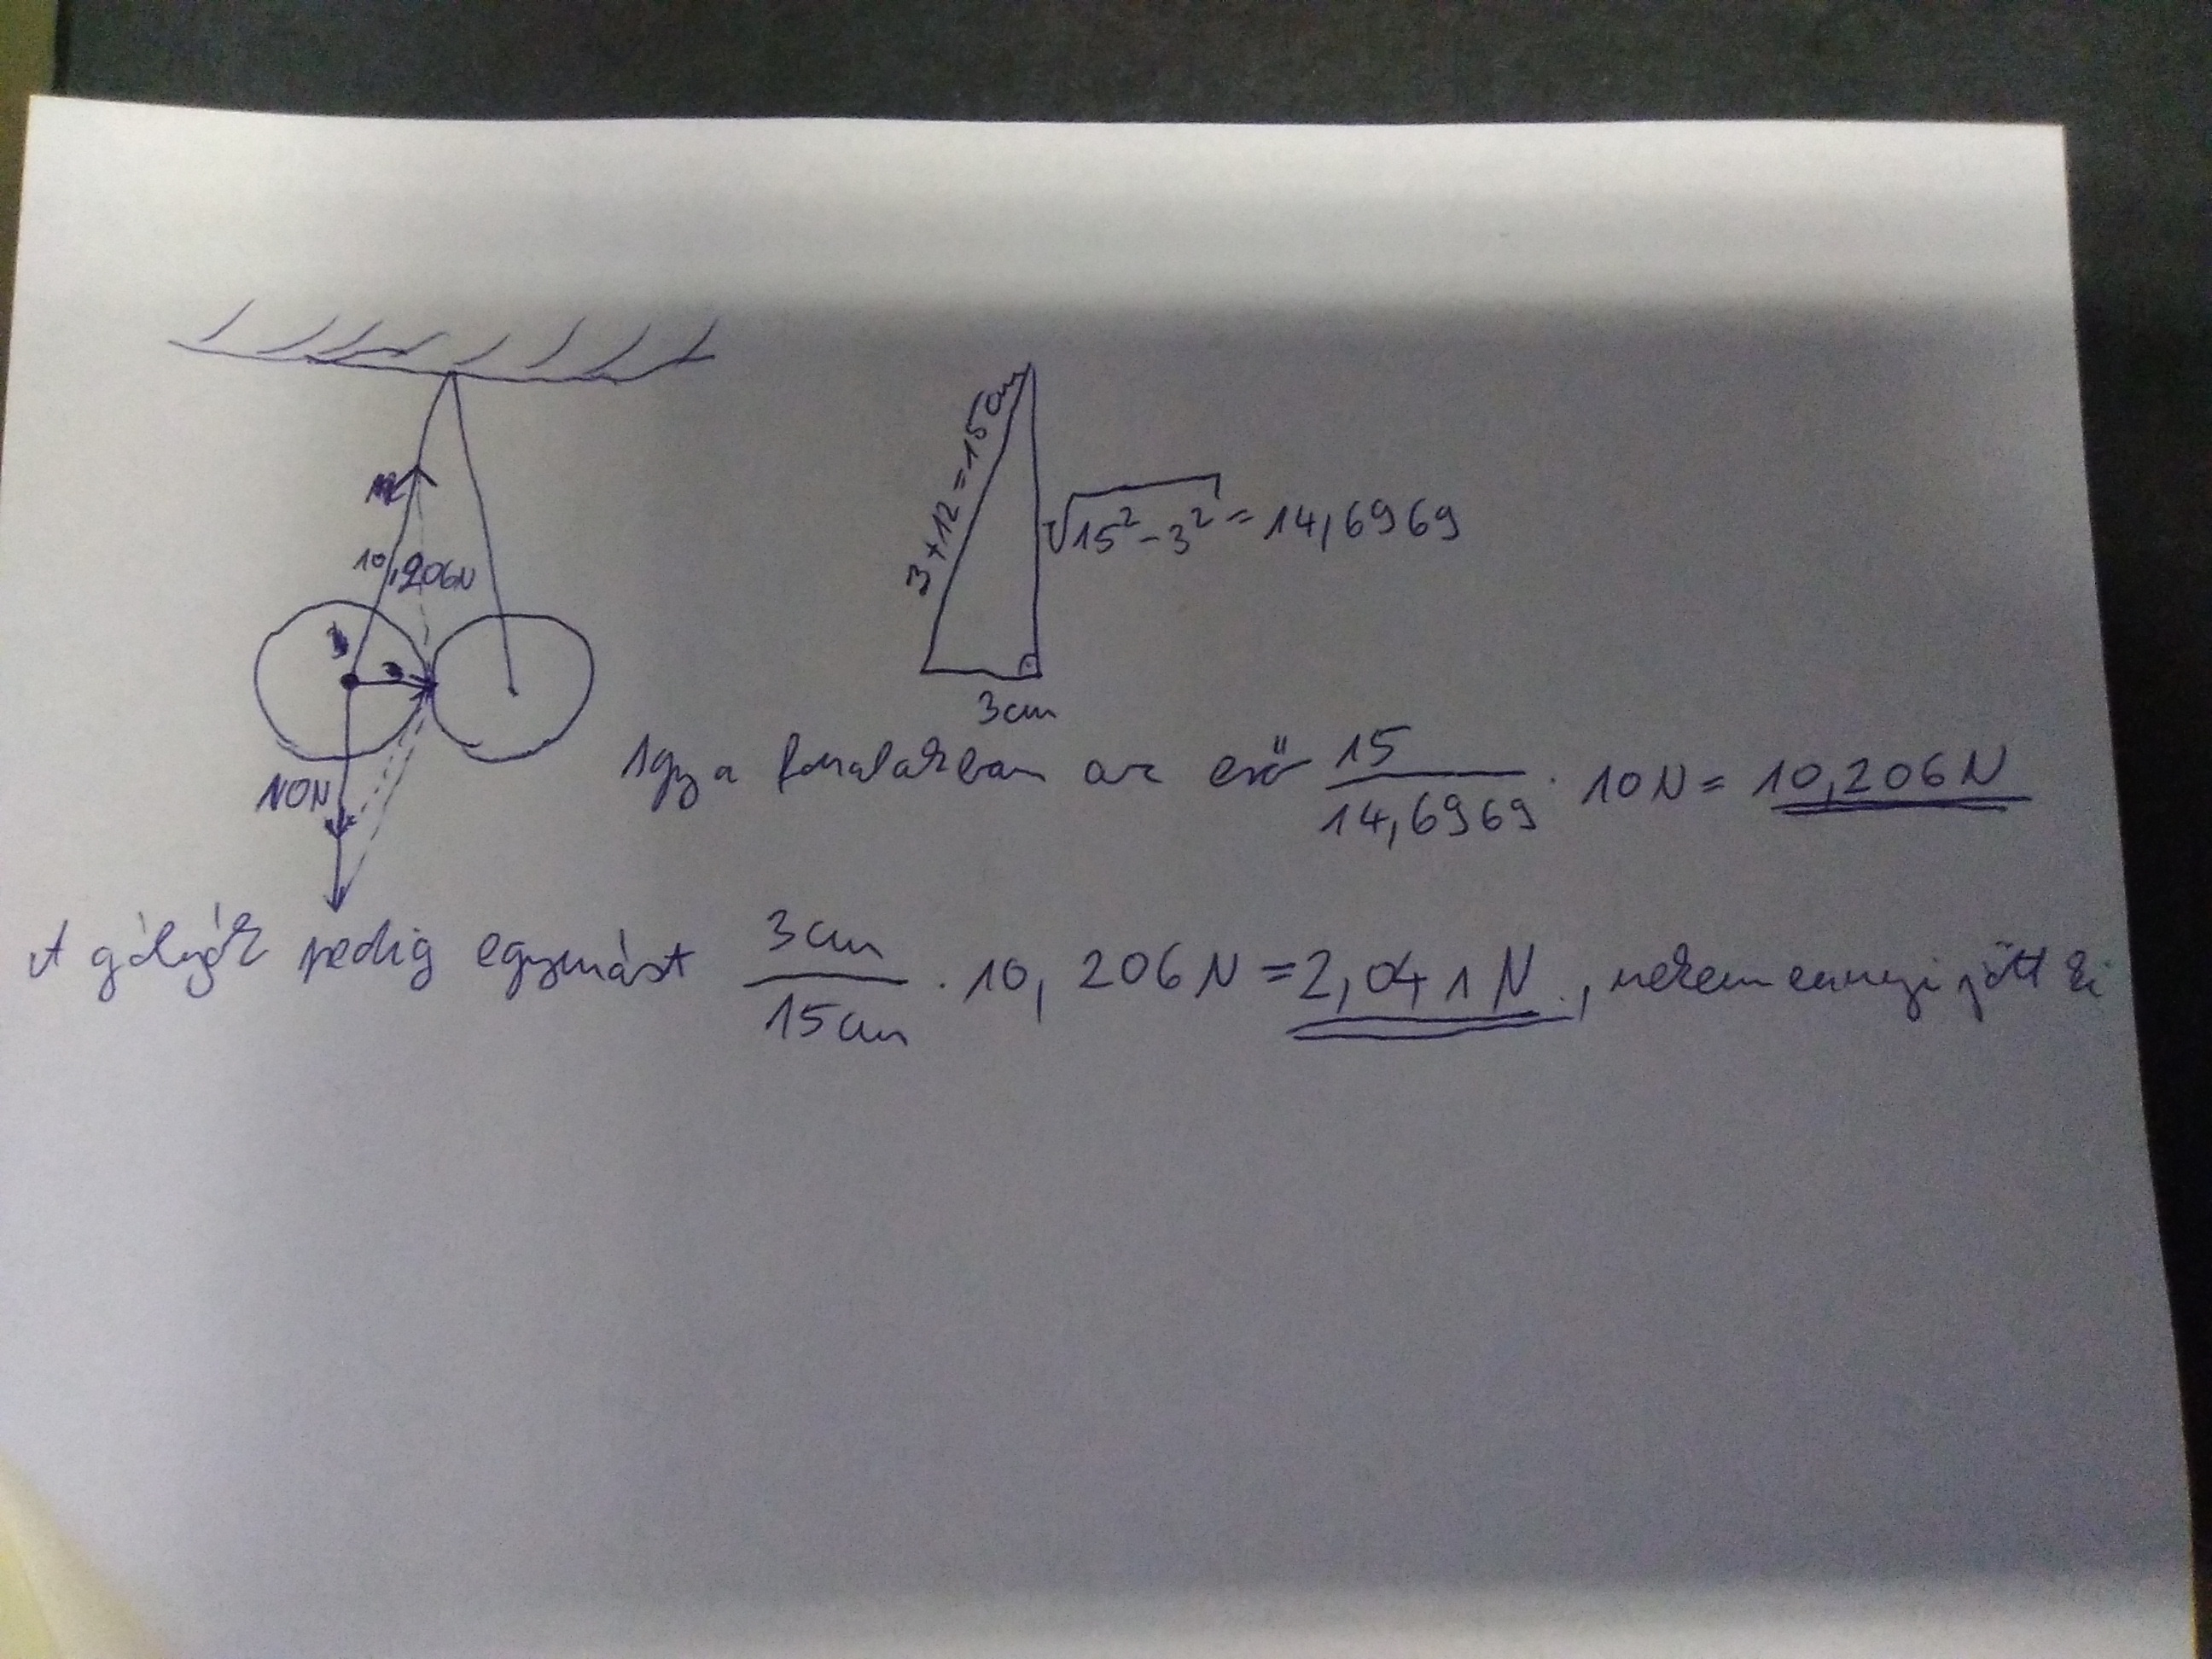 3+12=15cm
√15²-3² = 14,6969
10,206N
3
3cm
10N
Így a fonalakban az erő 15/14,6969 · 10N = 10,206N
A golyók pedig egymást 3cm/15cm · 10,206N = 2,041N, nekem ennyi jött ki